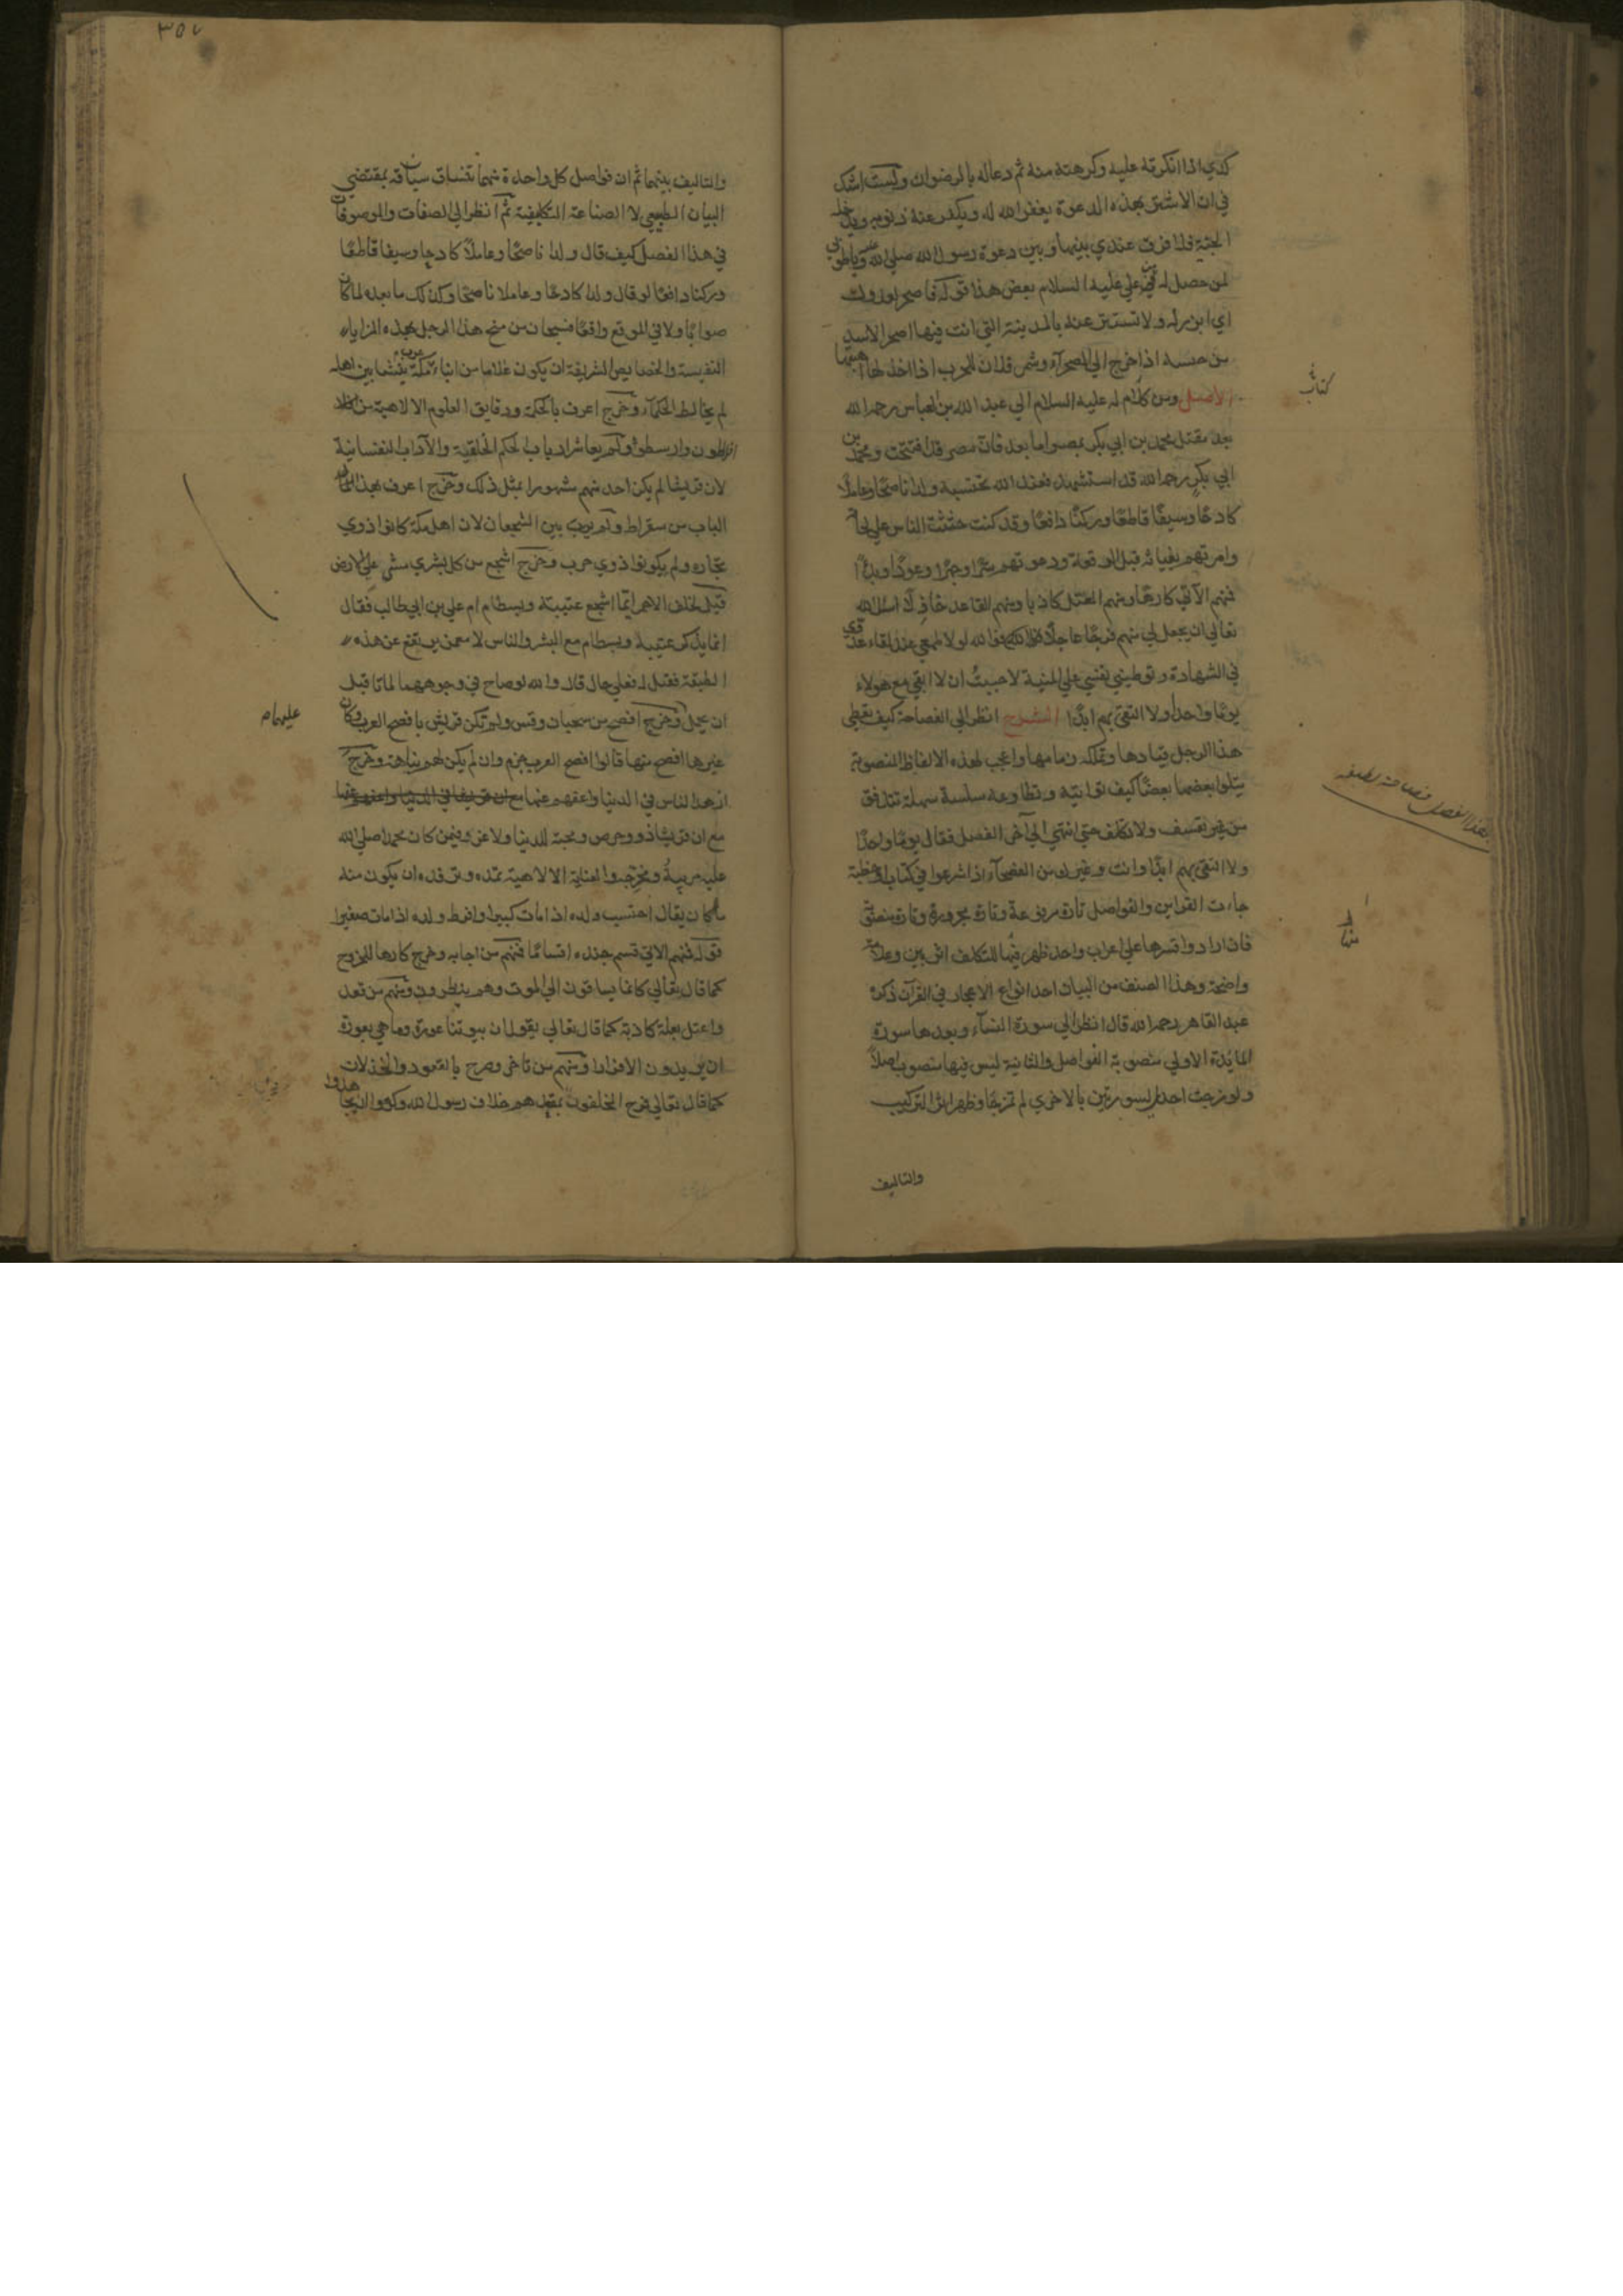 كذي اذا انكرته عليه وكرهته منه ثم دعا له بالرضوان ولست اشك
في ان الاشتر بهذه الدعوة يغفر الله له ويكفر عنه ذنوبه ويدخله
الجنة فلا فرق عندي بينها وبين دعوة رسول الله صلى الله عليه وياطوبى
لمن حصل له من علي عليه السلام بعض هذا قوله فاصحر لعدوك
اي ابرز له ولا تستتر عنه بالمدينة التي انت فيها اصحر الاسد
من خيسه اذا خرج الي الصحرآء وشمر فلان للحرب اذا اخذ لها اهبتها
الاصل ومن كلام له عليه السلام الي عبد الله بن العباس رحمه الله
كتاب
بعد مقتل محمد بن ابي بكر بمصر اما بعد فان مصر قد افتتحت ومحمد بن
ابي بكر رحمه الله قد استشهد فعند الله نحتسبه ولدا ناصحا وعاملا
كادحا وسيفا قاطعا وركنا دافعا وقد كنت حثثت الناس علي لحاقه
وامرتهم بغياثه قبل الوقعة ودعوتهم سرا وجهرا وعودا وبدءا
فمنهم الآتي كارها ومنهم المعتل كاذبا ومنهم القاعد خاذلا اسئل الله
تعالي ان يجعل لي منهم فرجا عاجلا فوالله لولا طمعي عند لقاء عدوي
في الشهادة وتوطيني نفسي علي المنية لاحببت ان لا ابقي مع هولاء
يوما واحدا ولا التقي بهم ابدا الشرح انظر الي الفصاحة كيف تعطي
هذا الرجل قيادها وتملكه زمامها واعجب لهذه الالفاظ المنصوبة
يتلوا بعضها بعضا كيف تواتيه وتطاوعه سلسة سهلة تتدفق
بهذا الفصل فصاحة لطيفه
من غير تعسف ولا تكلف حتي انتهي الي آخر الفصل فقال يوما واحدا
ولا التقي بهم ابدا وانت وغيرك من الفصحآء اذا شرعوا في كتاب او خطبة
جاءت القراين والفواصل تارة مرفوعة وتارة مجرورة وتارة منصوبة
فان ارادوا قسرها علي اعراب واحد ظهر فيها للتكلف اثر بين وعلامة
واضحة وهذا الصنف من البيان احد انواع الاعجاز في القرآن ذكره
عبد القاهر رحمه الله قال انظر الي سورة النسآء وبعدها سورة
المايدة الاولي منصوبة الفواصل والثانية ليس فيها منصوب اصلا
ولو مزجت احدي السورتين بالاخري لم تمتزجا وظهر اثر التركيب
والتاليف
٣٥٧
والتاليف بينهما ثم ان فواصل كل واحدة منهما تنساق سياقة بمقتضي
البيان الطبيعي لا الصناعة التكلفية ثم انظر الي الصفات والموصوفات
في هذا الفصل كيف قال ولدا ناصحا وعاملا كادحا وسيفا قاطعا
وركنا دافعا لو قال ولدا كادحا وعاملا ناصحا وكذلك ما بعده لما كان
صوابا ولا في الموقع واقعا فسبحان من منح هذا الرجل بهذه المزايا
النفيسة والخصايص الشريفة ان يكون غلاما من ابناء عرب مكة ينشا بين اهله
لم يخالط الحكمآء وخرج اعرف بالحكمة ودقايق العلوم الالاهية من
افلاطون وارسطو ولم يعاشر ارباب الحكم الخلقية والآداب النفسانية
لان قريشا لم يكن احد منهم مشهورا بمثل ذلك وخرج اعرف بهذا
الباب من سقراط ولم يرب بين الشجعان لان اهل مكة كانوا ذوي
تجارة ولم يكونوا ذوي حرب وخرج اشجع من كل بشري مشي علي الارض
قيل لخلف الاحمر ايما اشجع عتيبة وبسطام ام علي بن ابي طالب فقال
انما يذكر عتيبة وبسطام مع البشر والناس لا مع من يرتفع عن هذه
الطبقة فقيل له فعلي حال قال والله لو صاح في وجوههما لماتا قبل
ان يحمل وخرج افصح من سحبان وقس ولم تكن قريش بافصح العرب وكان
عليهما
غيرها افصح منها قالوا افصح العرب جرهم وان لم يكن لهم نباهة وخرج
ازهد الناس في الدنيا واعفهم عنها
مع ان قريشا ذو وحرص ومحبة للدنيا ولا غرو فيمن كان محمد صلي الله
عليه مربيه ومخرجه والعناية الالاهية تمده وترفده ان يكون منه
ما كان يقال احتسب ولده اذا مات كبيرا وافرط ولده اذا مات صغيرا
قوله فمنهم الاتي قسم جنده اقساما فمنهم من اجابه وخرج كارها للخروج
كما قال تعالي كانما يساقون الي الموت وهم ينظرون ومنهم من قعد
واعتل بعلة كاذبة كما قال تعالي يقولون ان بيوتنا عورة وما هي بعورة
ان يريدون الا فرارا ومنهم من تاخر وصرح بالقعود والخذلان
كما قال تعالي فرح المخلفون بمقعدهم خلاف رسول الله وكرهوا ان يجاهدوا